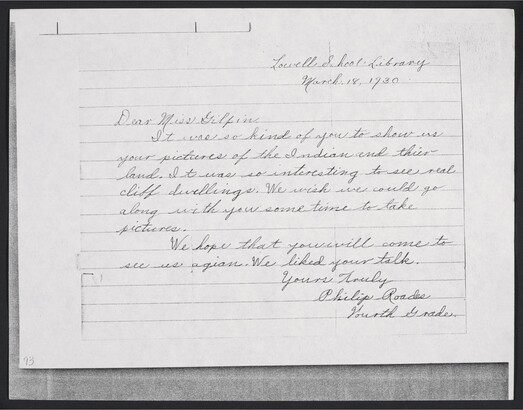 Lowell School Library
March 18, 1930
Dear Miss Gilpin
It was so kind of you to show us
your pictures of the Indian and thier
land. It was so interesting to see real
cliff dwellings. We wish we could go
along with you some time to take
pictures.
We hope that you will come to
see us agian. We liked your talk.
Yours truly
Philip Roads
Fourth Grade.
93